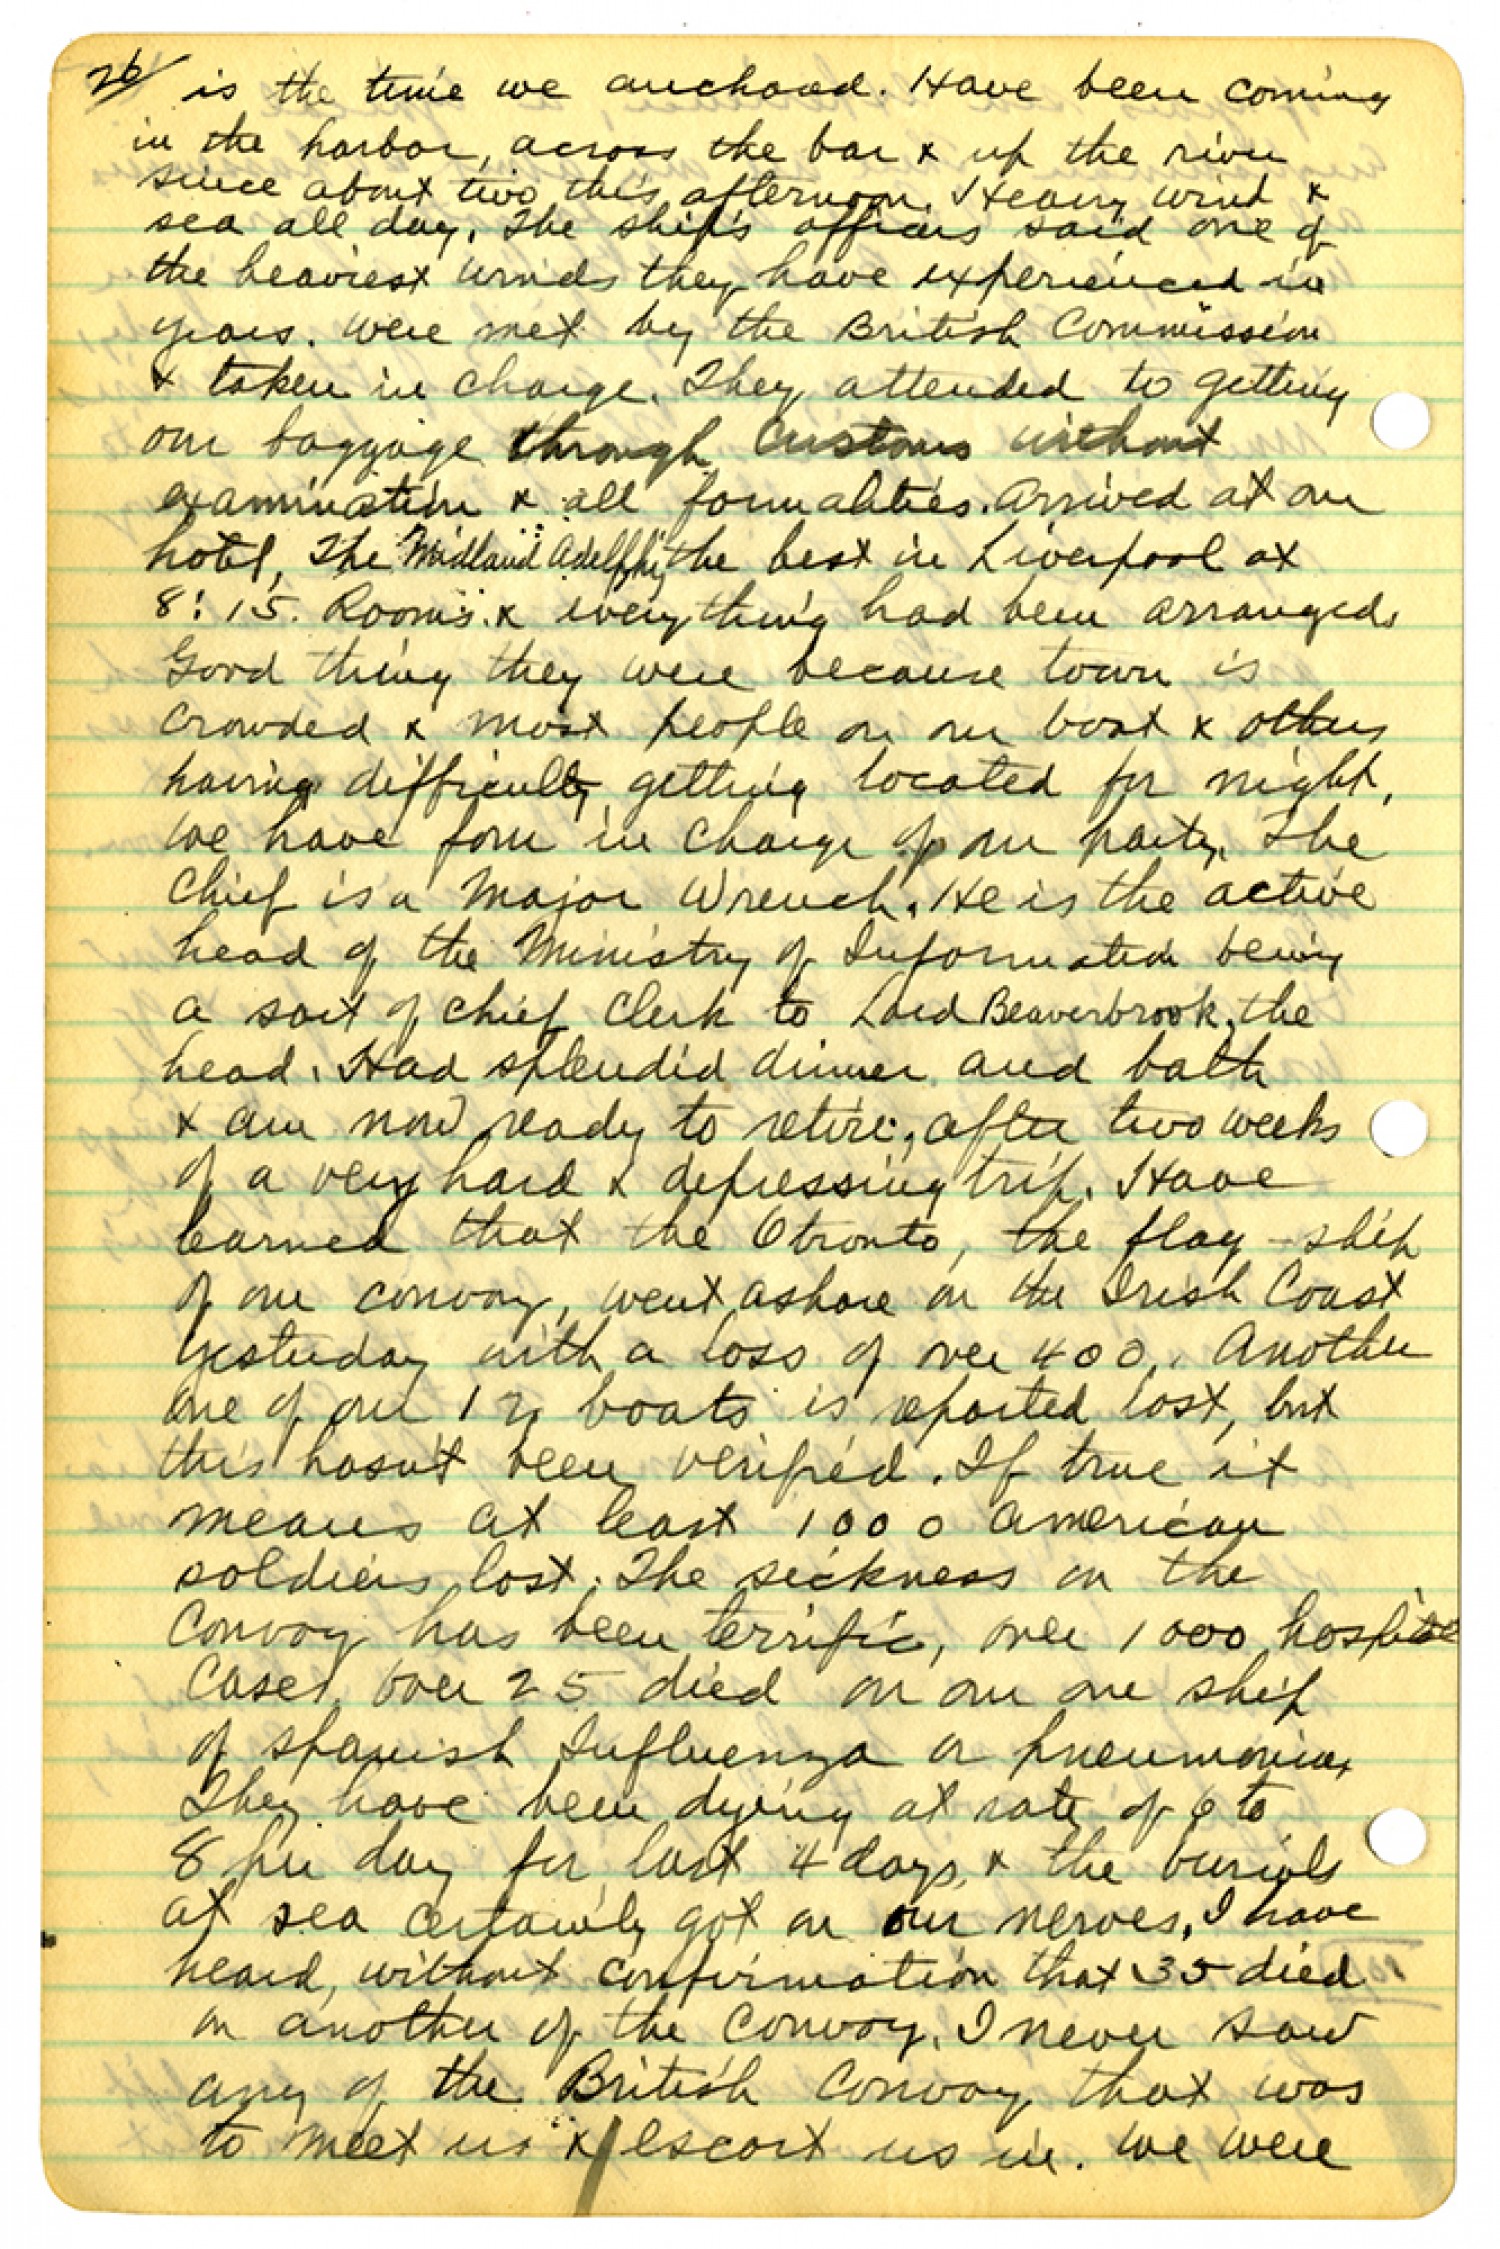 26/ is the time we anchored. Have been coming
in the harbor, across the bar & up the river
since about two this afternoon. Heavy wind &
sea all day. The ship's officers said one of
the heaviest winds they have experienced in
years. Were met by the British Commission
& taken in charge. They attended to getting
our baggage through Customs without
examination & all formalities. Arrived at our
hotel, The "Midland Adelphi," the best in Liverpool at
8:15. Rooms & everything had been arranged.
Good thing they were because town is
crowded & most people on our boat & others
having difficulty getting located for night.
We have four in charge of our party. The
Chief is a Major Wrench. He is the active
head of the Ministry of Information being
a sort of chief clerk to Lord Beaverbrook, the
head. Had splendid dinner and bath
& am now ready to retire, after two weeks
of a very hard & depressing trip. Have
learned that the Otronto, the flag-ship
of our convoy, went ashore on the Irish Coast
yesterday with a loss of over 400. Another
one of our 12 boats is reported lost, but
this hasn't been verified. If true it
means at least 1000 American
soldiers lost. The sickness on the
Convoy has been terrific, over 1000 hospital
Cases, over 25 died on our one ship
of Spanish Influenza or pneumonia.
They have been dying at rate of 6 to
8 per day for last 4 days, & the burials
at sea certainly got on our nerves. I have
heard, without confirmation that 35 died
on another of the Convoy. I never saw
any of the British Convoy that was
to meet us & escort us in. We were